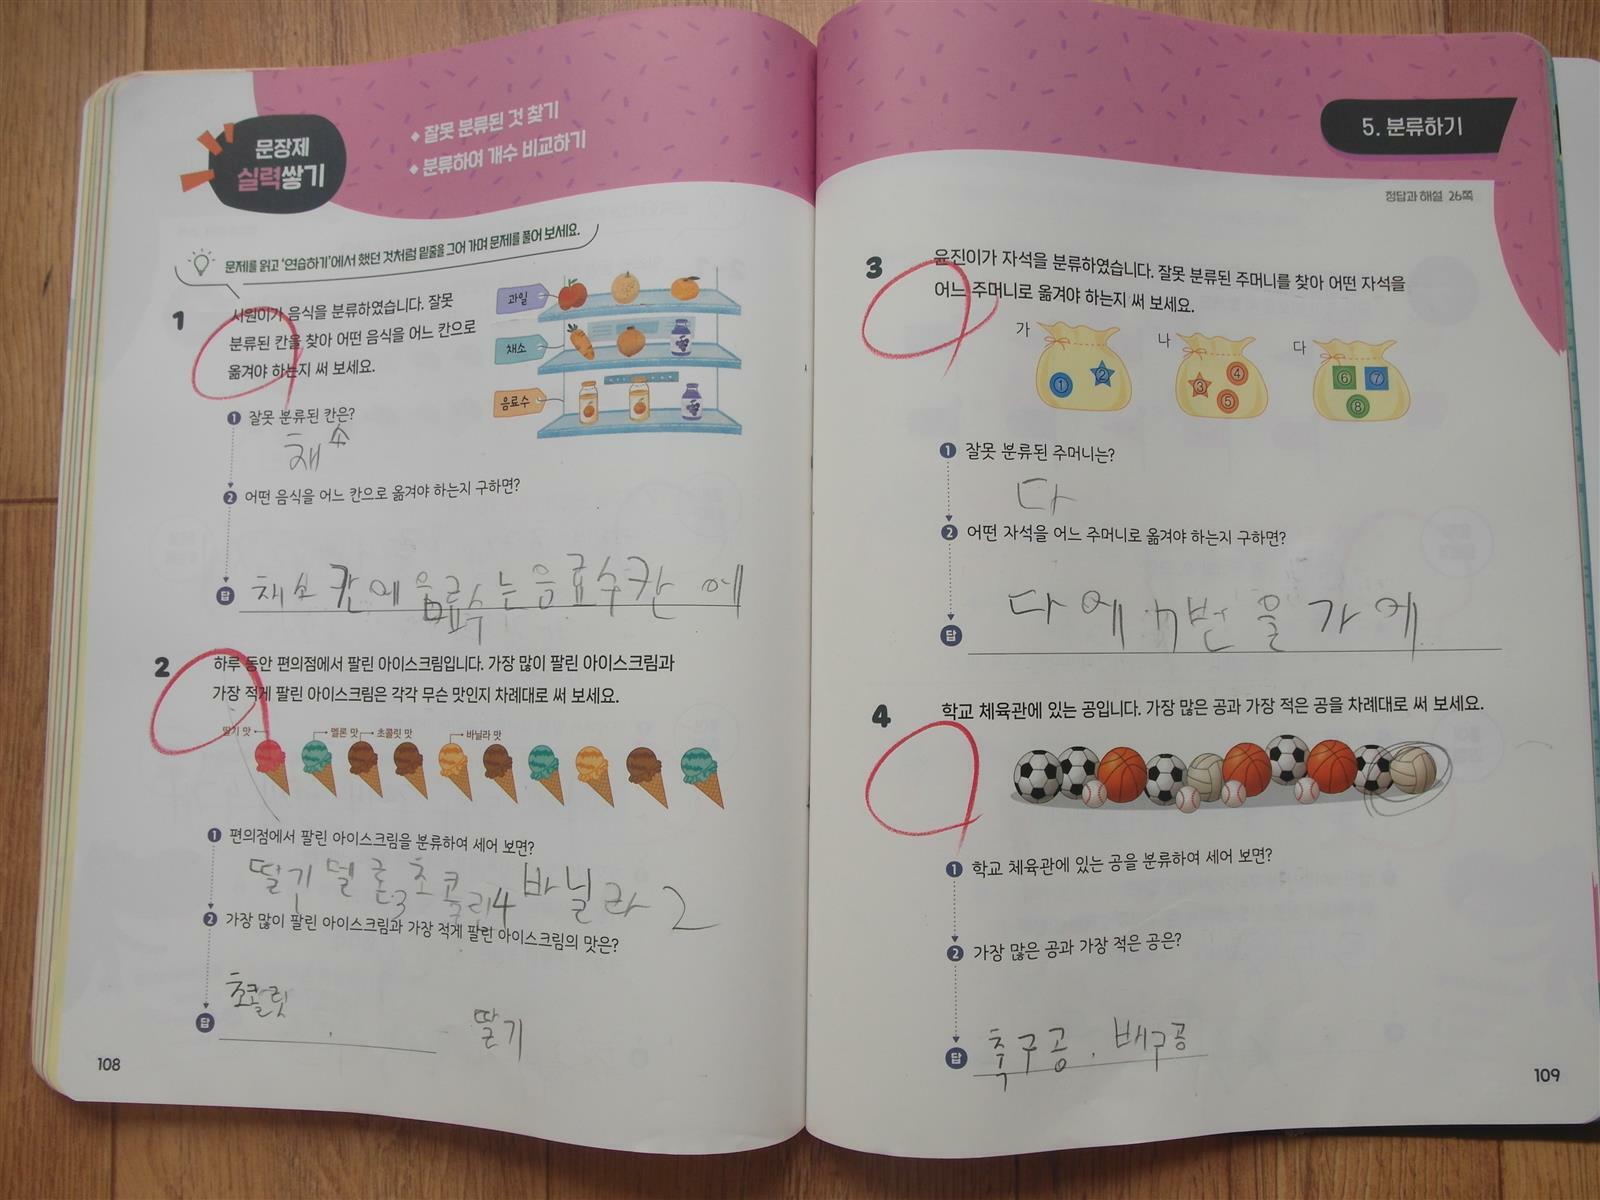 문장제
실력쌓기
◆ 잘못 분류된 것 찾기
◆ 분류하여 개수 비교하기
문제를 읽고 '연습하기'에서 했던 것처럼 밑줄을 그어 가며 문제를 풀어 보세요.
1 서원이가 음식을 분류하였습니다. 잘못
분류된 칸을 찾아 어떤 음식을 어느 칸으로
옮겨야 하는지 써 보세요.
과일
채소
음료수
❶ 잘못 분류된 칸은?
채소
❷ 어떤 음식을 어느 칸으로 옮겨야 하는지 구하면?
답 채소칸에 음료수는 음료수칸에
2 하루 동안 편의점에서 팔린 아이스크림입니다. 가장 많이 팔린 아이스크림과
가장 적게 팔린 아이스크림은 각각 무슨 맛인지 차례대로 써 보세요.
딸기 맛 멜론 맛 초콜릿 맛 바닐라 맛
❶ 편의점에서 팔린 아이스크림을 분류하여 세어 보면?
딸기 1 멜론 3 초콜릿 4 바닐라 2
❷ 가장 많이 팔린 아이스크림과 가장 적게 팔린 아이스크림의 맛은?
초콜릿
답 , 딸기
108
5. 분류하기
정답과 해설 26쪽
3 윤진이가 자석을 분류하였습니다. 잘못 분류된 주머니를 찾아 어떤 자석을
어느 주머니로 옮겨야 하는지 써 보세요.
가 나 다
① ② ③ ④ ⑤ ⑥ ⑦ ⑧
❶ 잘못 분류된 주머니는?
다
❷ 어떤 자석을 어느 주머니로 옮겨야 하는지 구하면?
답 다에 7번을 가에
4 학교 체육관에 있는 공입니다. 가장 많은 공과 가장 적은 공을 차례대로 써 보세요.
❶ 학교 체육관에 있는 공을 분류하여 세어 보면?
❷ 가장 많은 공과 가장 적은 공은?
답 축구공, 배구공
109